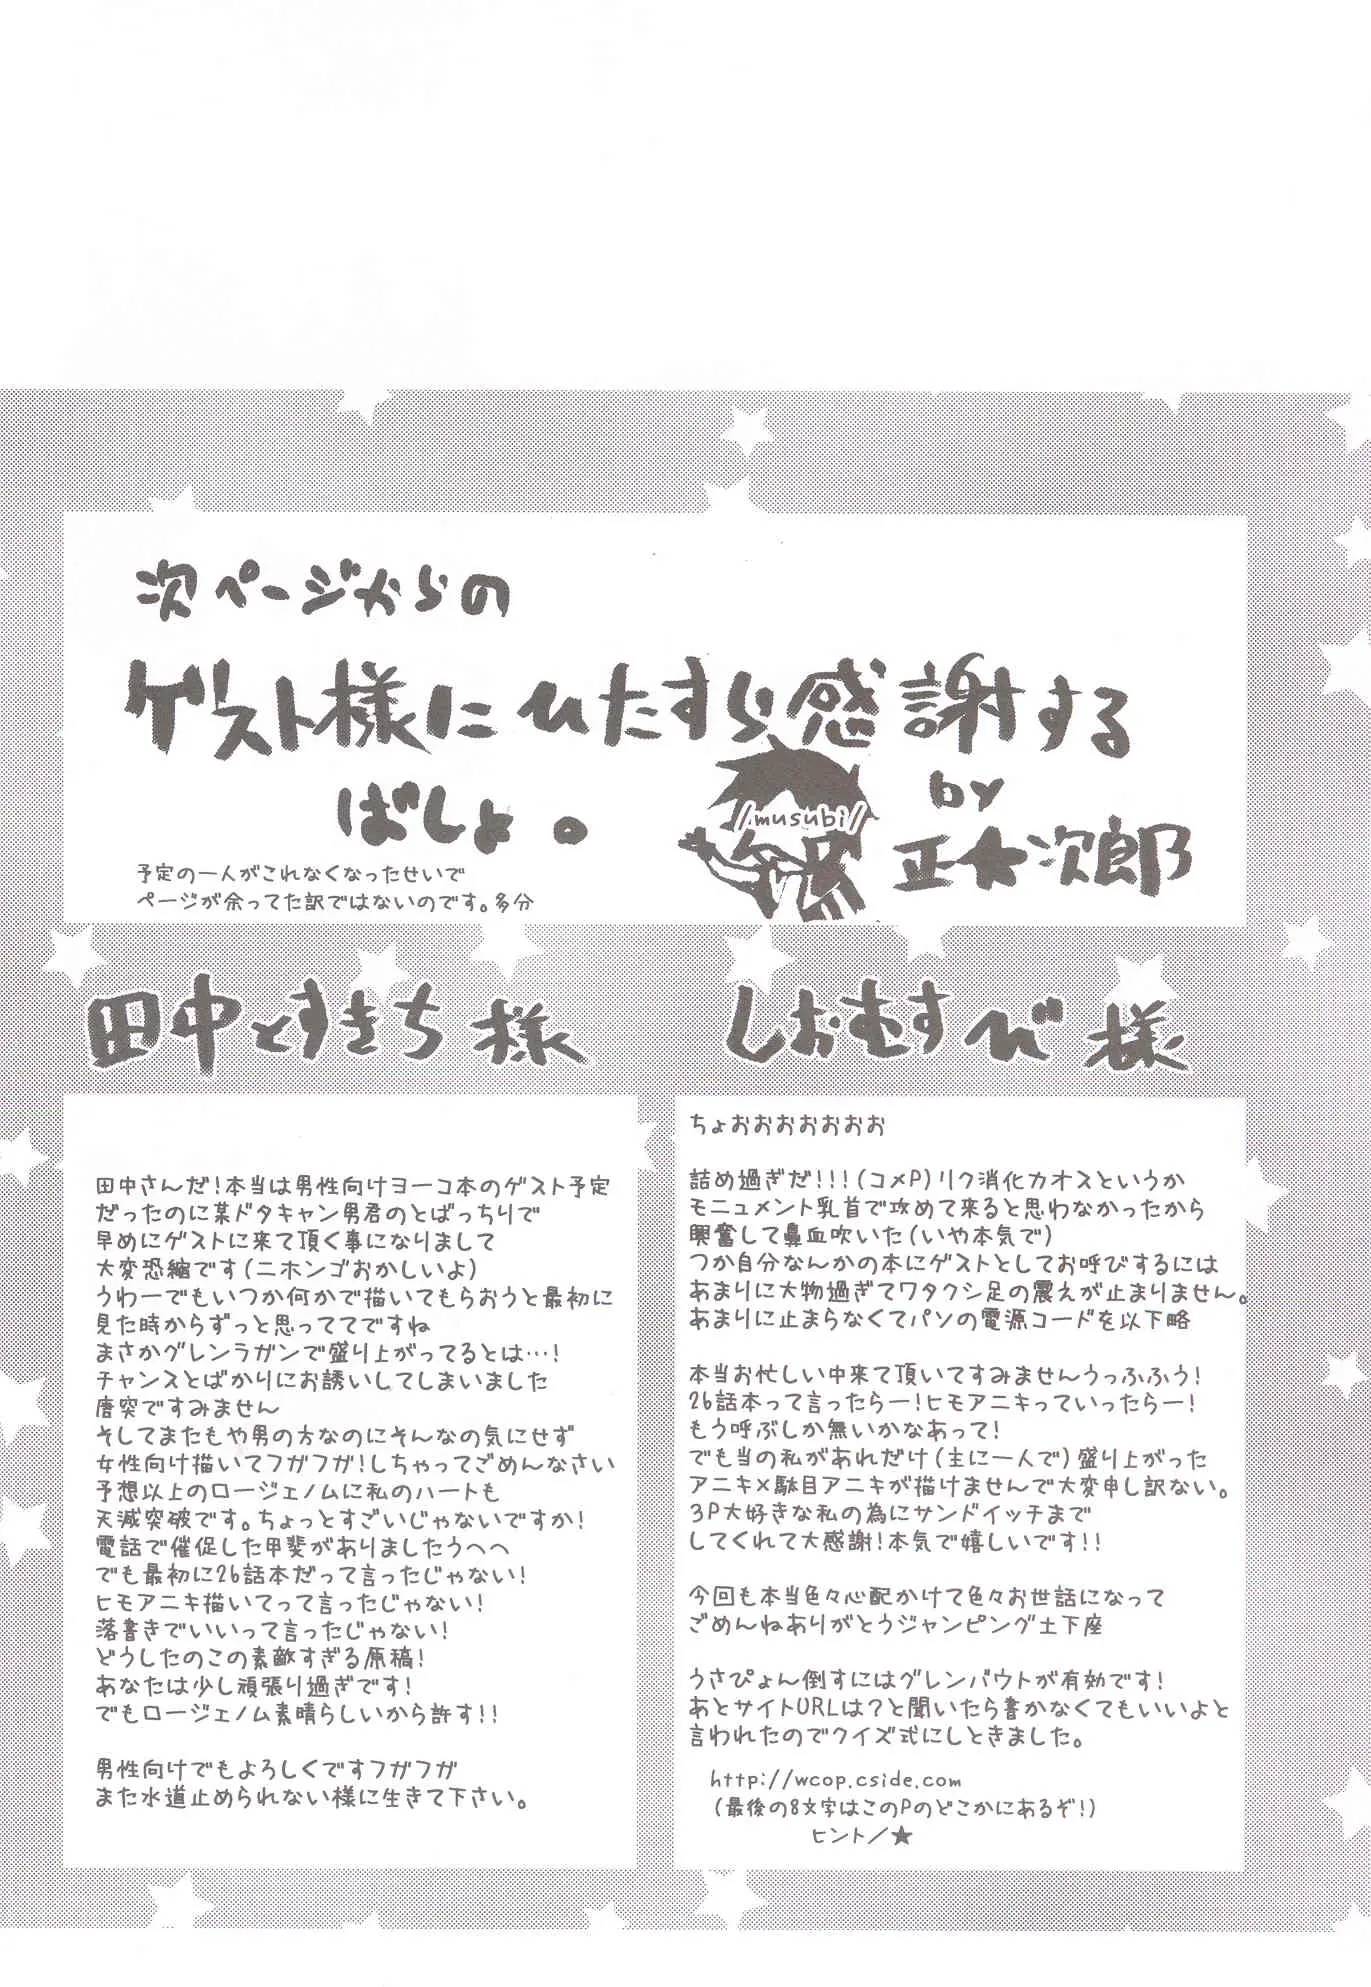 次ページからの
ゲスト様にひたすら感謝する
ばしょ。
/musubi/
by
正★次郎
予定の一人がこれなくなったせいで
ページが余ってた訳ではないのです。多分
田中とすきち様
田中さんだ!本当は男性向けヨーコ本のゲスト予定
だったのに某ドタキャン男君のとばっちりで
早めにゲストに来て頂く事になりまして
大変恐縮です(ニホンゴおかしいよ)
うわーでもいつか何かで描いてもらおうと最初に
見た時からずっと思っててですね
まさかグレンラガンで盛り上がってるとは…!
チャンスとばかりにお誘いしてしまいました
唐突ですみません
そしてまたもや男の方なのにそんなの気にせず
女性向け描いてフガフガ!しちゃってごめんなさい
予想以上のロージェノムに私のハートも
天減突破です。ちょっとすごいじゃないですか!
電話で催促した甲斐がありましたうへへ
でも最初に26話本だって言ったじゃない!
ヒモアニキ描いてって言ったじゃない!
落書きでいいって言ったじゃない!
どうしたのこの素敵すぎる原稿!
あなたは少し頑張り過ぎです!
でもロージェノム素晴らしいから許す!!
男性向けでもよろしくですフガフガ
また水道止められない様に生きて下さい。
しおむすび様
ちょおおおおおおお
詰め過ぎだ!!!(コメP)リク消化カオスというか
モニュメント乳首で攻めて来ると思わなかったから
興奮して鼻血吹いた(いや本気で)
つか自分なんかの本にゲストとしてお呼びするには
あまりに大物過ぎてワタクシ足の震えが止まりません。
あまりに止まらなくてパソの電源コードを以下略
本当お忙しい中来て頂いてすみませんうっふふう!
26話本って言ったらー!ヒモアニキっていったらー!
もう呼ぶしか無いかなあって!
でも当の私があれだけ(主に一人で)盛り上がった
アニキ×駄目アニキが描けませんで大変申し訳ない。
3P大好きな私の為にサンドイッチまで
してくれて大感謝!本気で嬉しいです!!
今回も本当色々心配かけて色々お世話になって
ごめんねありがとうジャンピング土下座
うさぴょん倒すにはグレンバウトが有効です!
あとサイトURLは?と聞いたら書かなくてもいいよと
言われたのでクイズ式にしときました。
http://wcop.cside.com
(最後の8文字はこのPのどこかにあるぞ!)
ヒント/★